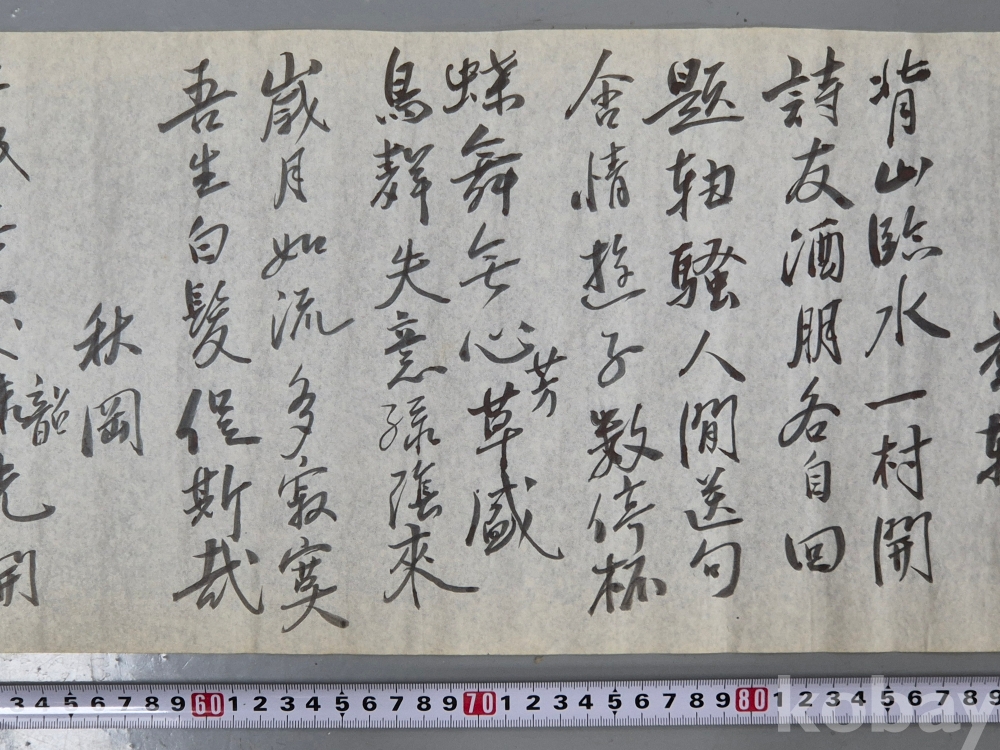 背山臨水一村開
詩友酒朋各自回
題軸騷人閒送句
含情遊子数停杯
蝶舞無心芳草盛
鳥聲失意綠陰來
歲月如流多寂寞
吾生白髮促斯哉
秋岡
韶光開
3 4 5 6 7 8 9 60 1 2 3 4 5 6 7 8 9 70 1 2 3 4 5 6 7 8 9 80 1 2 3 4 5 6 7 8
kobay